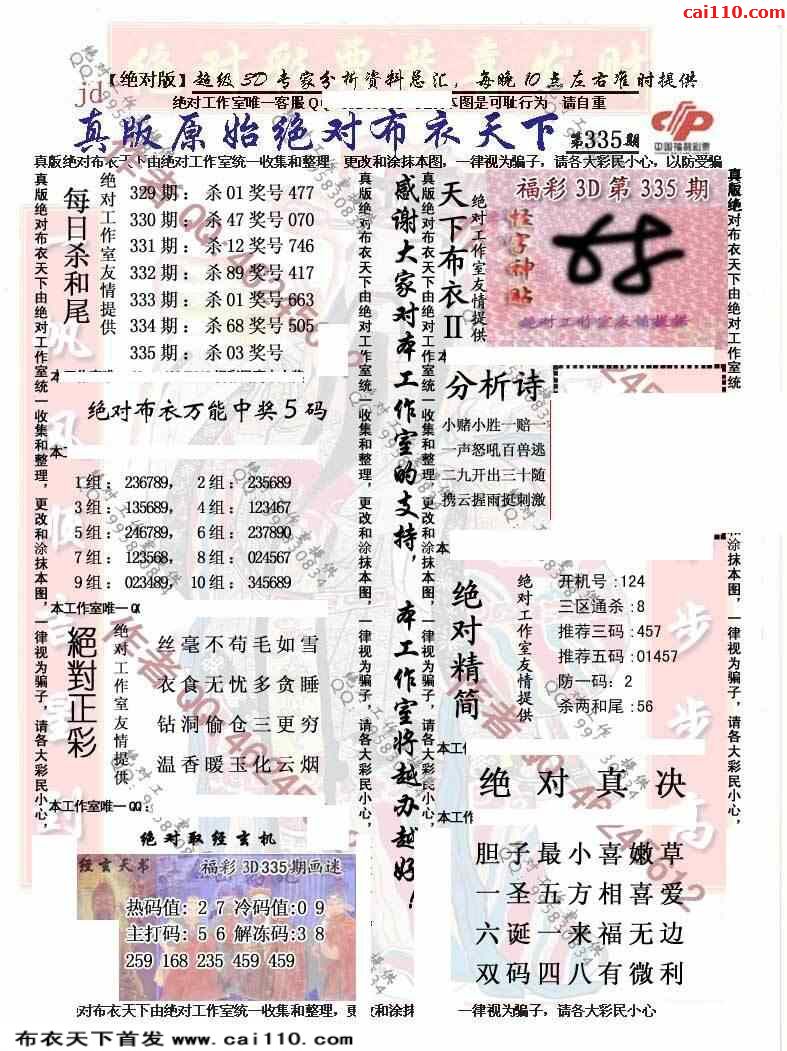 cai110.com
【绝对版】超级3D专家分析资料总汇，每晚10点左右准时提供
jd
绝对工作室唯一客服Q
本图是可耻行为 请自重
真版原始绝对布衣天下
第335期
中国福利彩票
真版绝对布衣天下由绝对工作室统一收集和整理，更改和涂抹本图，一律视为骗子，请各大彩民小心，以防受骗
真版绝对布衣天下由绝对工作室统一收集和整理，更改和涂抹本图，一律视为骗子，请各大彩民小心，
每日杀和尾
绝对工作室友情提供
329期：杀01奖号477
330期：杀47奖号070
331期：杀12奖号746
332期：杀89奖号417
333期：杀01奖号663
334期：杀68奖号505
335期：杀03奖号
绝对布衣万能中奖5码
1组：236789，2组：235689
3组：135689，4组：123467
5组：246789，6组：237890
7组：123568，8组：024567
9组：023489，10组：345689
本工作室唯一
絕對正彩
绝对工作室友情提供
丝毫不苟毛如雪
衣食无忧多贪睡
钻洞偷仓三更穷
温香暖玉化云烟
本工作室唯一QQ：
绝对取经玄机
经玄天书
福彩3D335期画迷
热码值：27冷码值:09
主打码：56解冻码:38
259 168 235 459 459
真版绝对布衣天下由绝对工作室统一收集和整理，更改和涂抹本图，一律视为骗子，请各大彩民小心，
感谢大家对本工作室的支持，本工作室将越办越好！
真版绝对布衣天下由绝对工作室统一收集和整理，更改和涂抹本图，一律视为骗子，请各大彩民小心，
天下布衣II
绝对工作室友情提供
福彩3D第335期
怪字神贴
绝对工作室友情提供
分析诗
小赌小胜一赔一
一声怒吼百兽逃
二九开出三十随
携云握雨挺刺激
绝对精简
绝对工作室友情提供
开机号:124
三区通杀:8
推荐三码:457
推荐五码:01457
防一码：2
杀两和尾:56
绝对真决
胆子最小喜嫩草
一圣五方相喜爱
六诞一来福无边
双码四八有微利
真版绝对布衣天下由绝对工作室统
涂抹本图，一律视为骗子，请各大彩民小心，
对布衣天下由绝对工作室统一收集和整理，更改和涂抹
一律视为骗子，请各大彩民小心
布衣天下首发 www.cai110.com